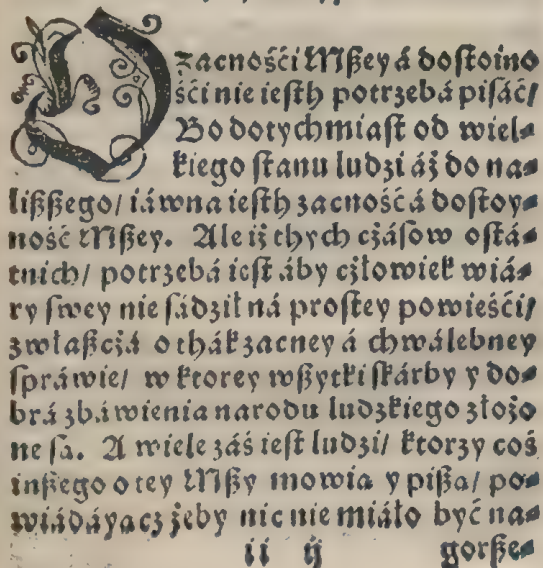 O zacnośći Mßey á dostoino
śći nie iesth potrzebá pisáć/
Bo dotychmiast od wiel⸗
kiego stanu ludzi áż do na⸗
lißßego/ iáwna iesth zacność á dostoy⸗
ność Mßey. Ale iż thych cżásow ostá⸗
tnich/ potrzebá iest áby cżłowiek wiá⸗
ry swey nie sádził ná prostey powieśći/
zwłaßcżá o thák zacney á chwálebney
spráwie/ w ktorey wßytki skárby y do⸗
brá zbáwienia narodu ludzkiego złożo
ne sa. A wiele záś iest ludzi/ ktorzy coś
inßego o tey Mßy mowia y pißa/ po⸗
wiádáyacz żeby nic nie miáło być na⸗
ii ij gorße⸗